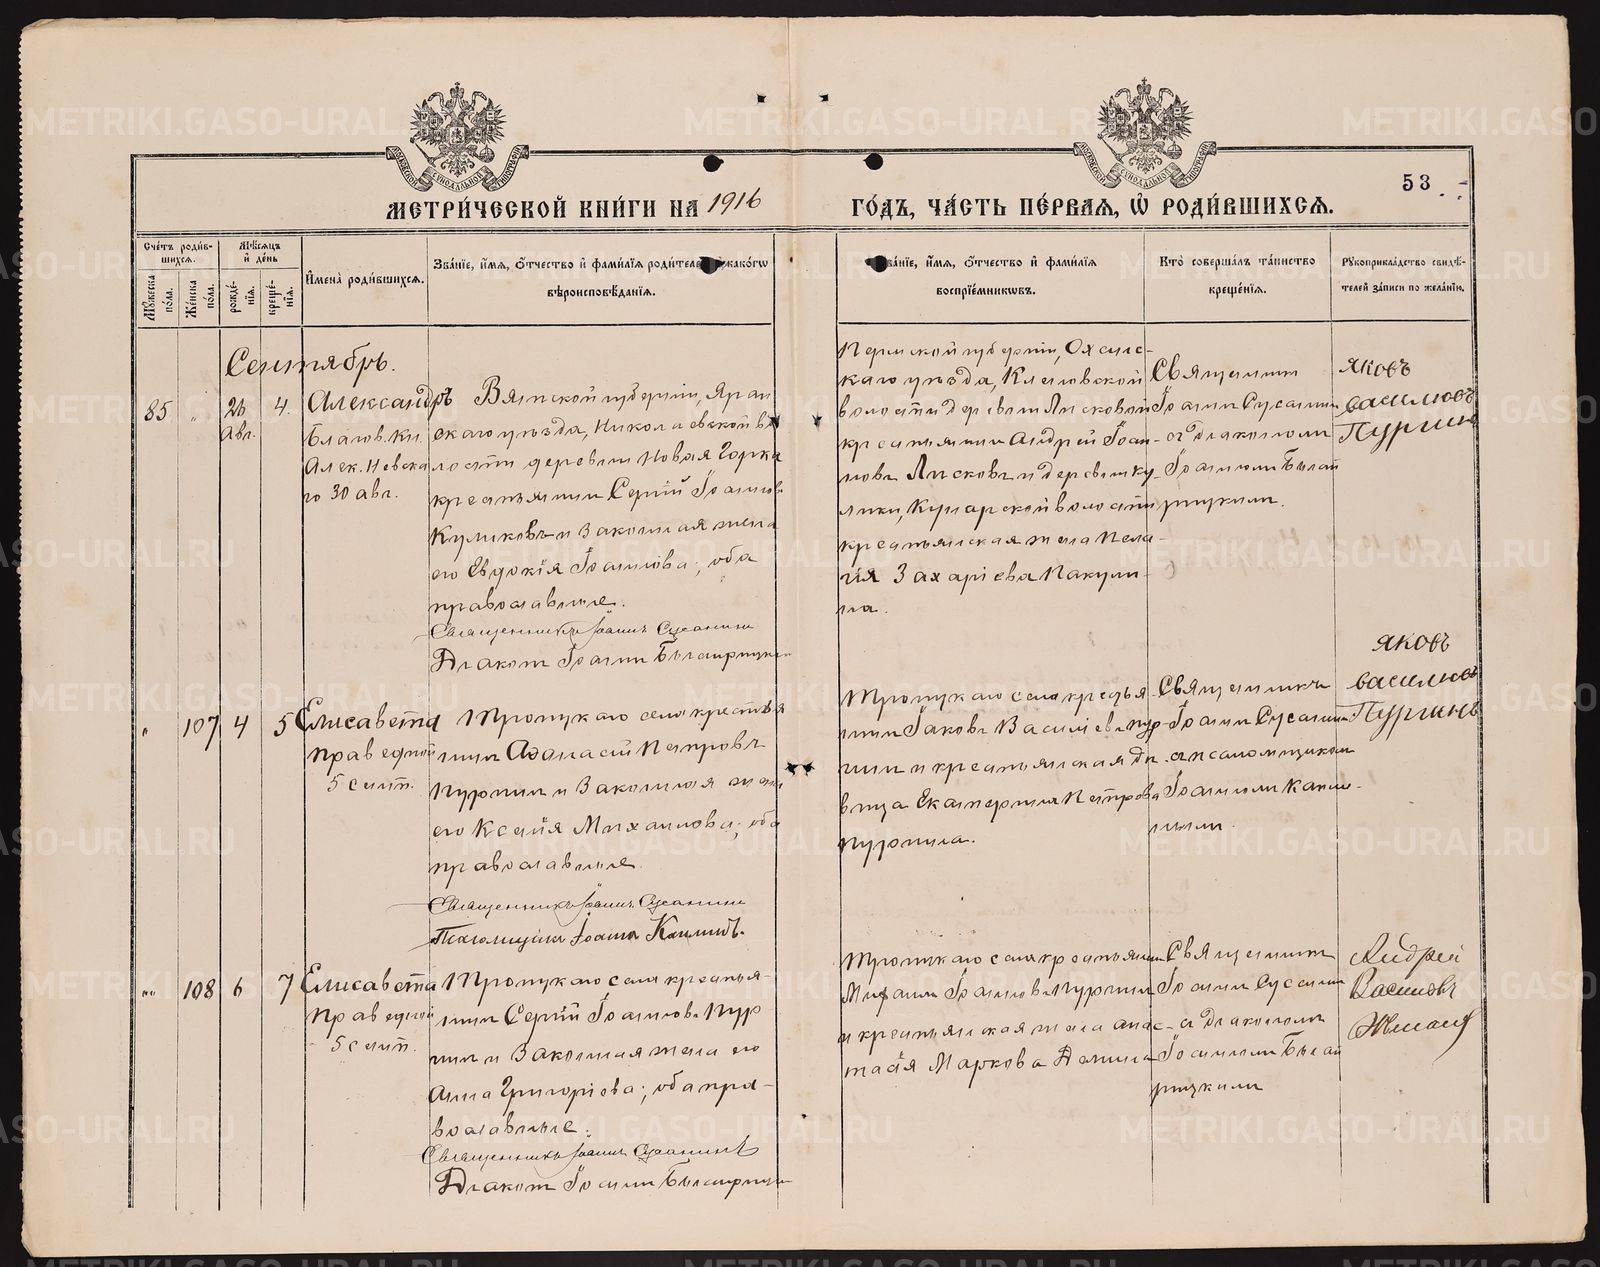 METRIKI.GASO-URAL.RU
МЕТРИ́ЧЕСКОЙ КНИ́ГИ НА 1916 ГО́ДЪ, ЧА́СТЬ ПЕ́РВАѦ, Ѽ РОДИ́ВШИХСѦ.
53
Сче́тъ роди́вшихсѧ.
Мꙋ́жеска по́ла.
Же́нска по́ла.
Мѣ́сѧцъ и де́нь
рожде́нїѧ.
креще́нїѧ.
И҆мена̀ роди́вшихсѧ.
Зва́нїе, и҆́мѧ, ѻ҆́тчество и҆ фами́лїѧ роди́телей, и҆ како́гѡ
вѣроисповѣ́данїѧ.
Зва́нїе, и҆́мѧ, ѻ҆́тчество и҆ фами́лїѧ
воспрїе́мникѡвъ.
Кто̀ соверша́лъ та́инство
креще́нїѧ.
Рꙋкоприкла́дство свидѣ́-
телей за́писи по жела́нїю.
Сентябрь.
85
"
26
авг.
4.
Александръ
Благов. Кн.
Алек. Невска
го 30 авг.
Вятской губерніи, Яран
скаго уѣзда, Николаевской во
лости деревни Новая Горка
крестьянинъ Сергій Іоанновъ
Куликовъ и законная жена
его Евдокія Іоаннова; оба
православные.
Священникъ Іоаннъ Сусанинъ
Діаконъ Іоаннъ
Пермской губерніи, Оханс-
каго уѣзда,
волости деревни Лисковой
крестьянинъ Андрей Іоан-
новъ Лисковъ и деревни Ку-
лики, волости
крестьянская жена Пела-
гія Захаріева Пакули-
на.
Священникъ
Іоаннъ Сусанинъ
съ діакономъ
Іоанномъ
яковъ
василювъ
Пургинъ
"
107
4
5
Елисавета
праведной
5 сент.
Троицкаго села крестья
нинъ Аѳанасій Петровъ
Пургинъ и законная жена
его Ксенія Михаилова; оба
православные.
Священникъ Іоаннъ Сусанинъ
Псаломщикъ Іоаннъ
Троицкаго села крестья
нинъ Іаковъ Василіевъ Пур
гинъ и крестьянская дѣ
вица Екатерина Петрова
Пургина.
Священникъ
Іоаннъ Сусанинъ
съ псаломщикомъ
Іоанномъ
яковъ
василювъ
Пургинъ
"
108
6
7
Елисавета
праведной
5 сент.
Троицкаго села крестья-
нинъ Сергій Іоанновъ Пур
гинъ и законная жена его
Анна Григоріева; оба пра-
вославные.
Священникъ Іоаннъ Сусанинъ
Діаконъ Іоаннъ
Троицкаго села крестьянинъ
Михаилъ Іоанновъ Пургинъ
и крестьянская жена Анас-
тасія Маркова Демина
Священникъ
Іоаннъ Сусанинъ
съ діакономъ
Іоанномъ
Андрей